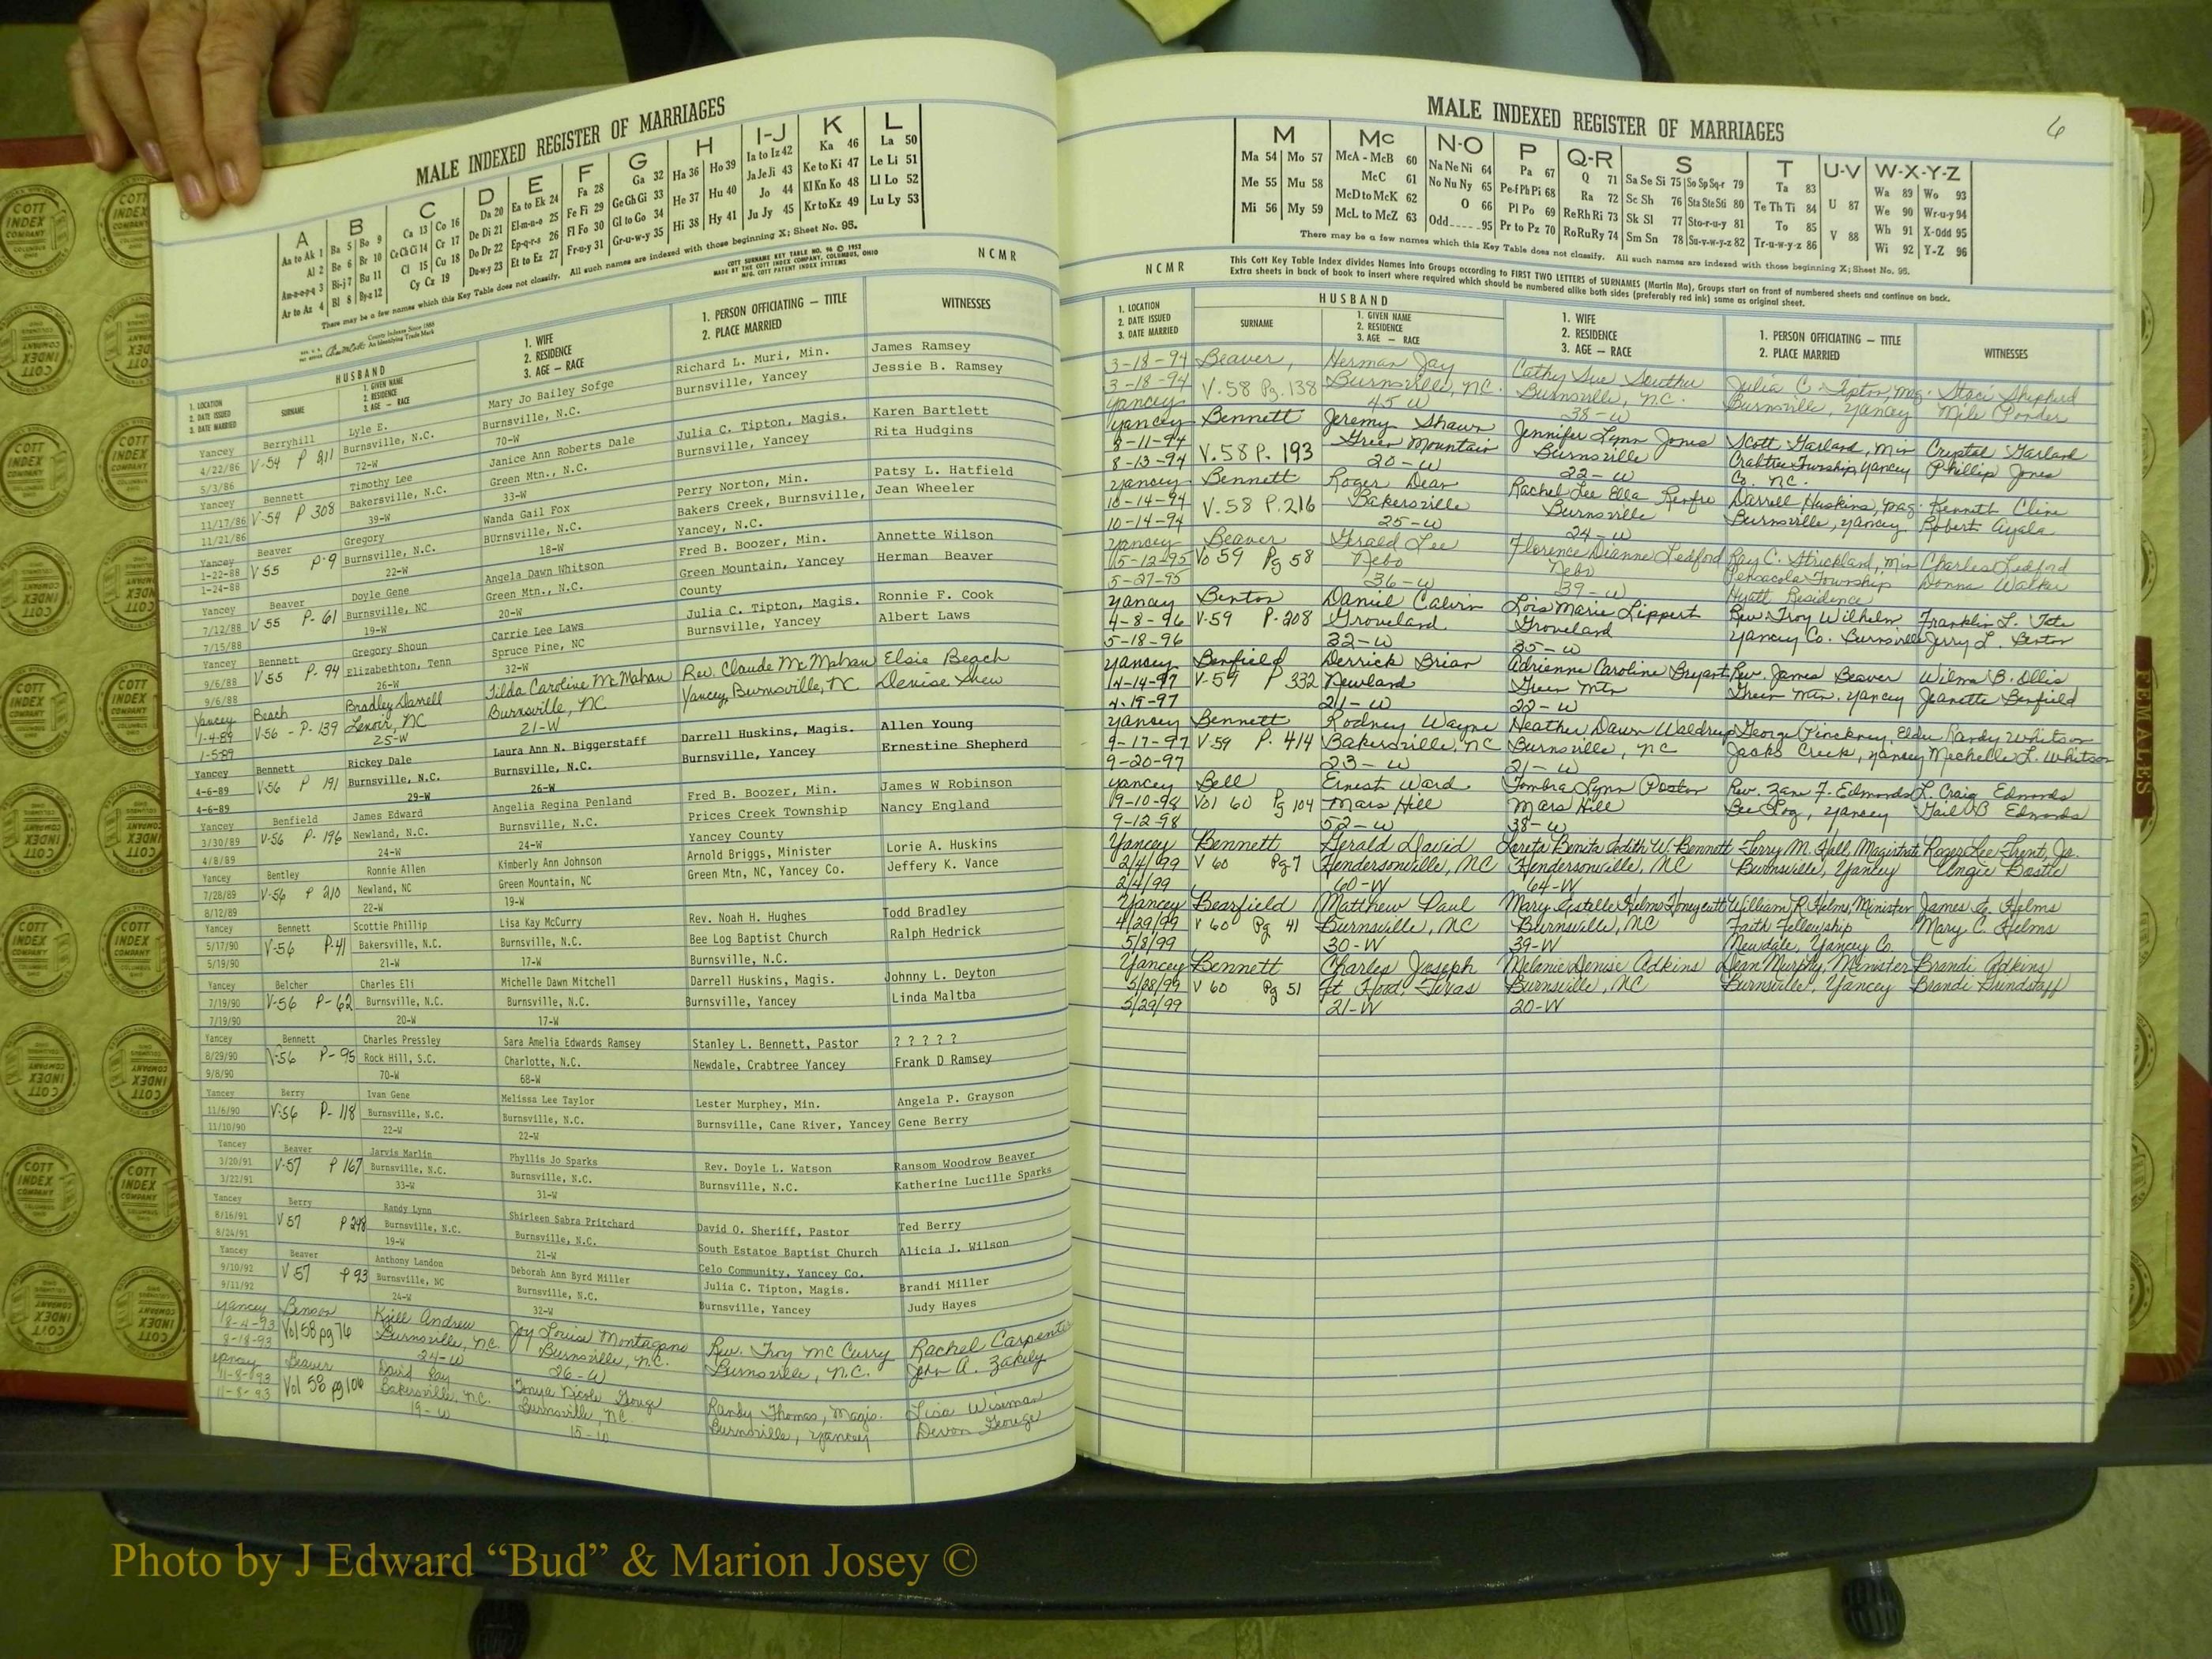 MALE INDEXED REGISTER OF MARRIAGES
A B C D E F G H I-J K L
Aa to Ak 1 Ba 5 Bo 9 Ca 13 Co 16 Da 20 Ea to Ek 24 Fa 28 Ga 32 Ha 36 Ho 39 Ia to Iz 42 Ka 46 La 50
Al 2 Be 6 Br 10 Ce Ch Ci 14 Cr 17 De Di 21 El-m-n-o 25 Fe Fi 29 Ge Gh Gi 33 He 37 Hu 40 Ja Je Ji 43 Ke to Ki 47 Le Li 51
Bi-j 7 Bu 11 Cl 15 Cu 18 Do Dr 22 Ep-q-r-s 26 Fl Fo 30 Gl to Go 34 Hi 38 Hy 41 Jo 44 Kl Kn Ko 48 Ll Lo 52
Ar to Az 4 Bl 8 By-z 12 Cy Cz 19 Du-w-y 23 Et to Ez 27 Fr-u-y 31 Gr-u-w-y 35 Ju Jy 45 Kr to Kz 49 Lu Ly 53
There may be a few names which this Key Table does not classify. All such names are indexed with those beginning X; Sheet No. 95.
COTT SURNAME KEY TABLE NO. 96 © 1952
MADE BY THE COTT INDEX COMPANY, COLUMBUS, OHIO
MFG. COTT PATENT INDEX SYSTEMS
NCMR
HUSBAND
1. LOCATION
2. DATE ISSUED
3. DATE MARRIED
SURNAME
1. GIVEN NAME
2. RESIDENCE
3. AGE — RACE
1. WIFE
2. RESIDENCE
3. AGE — RACE
1. PERSON OFFICIATING — TITLE
2. PLACE MARRIED
WITNESSES
Yancey Berryhill Lyle E. Mary Jo Bailey Sofge Richard L. Muri, Min. James Ramsey
4/22/86 V-54 P 211 Burnsville, N.C. Burnsville, N.C. Burnsville, Yancey Jessie B. Ramsey
5/3/86 72-W 70-W
Yancey Bennett Timothy Lee Janice Ann Roberts Dale Julia C. Tipton, Magis. Karen Bartlett
11/17/86 V-54 P 308 Bakersville, N.C. Green Mtn., N.C. Burnsville, Yancey Rita Hudgins
11/21/86 39-W 33-W
Yancey Beaver Gregory Wanda Gail Fox Perry Norton, Min. Patsy L. Hatfield
1-22-88 V55 P-9 Burnsville, N.C. BUrnsville, N.C. Bakers Creek, Burnsville, Jean Wheeler
1-24-88 22-W 18-W Yancey, N.C.
Yancey Beaver Doyle Gene Angela Dawn Whitson Fred B. Boozer, Min. Annette Wilson
7/12/88 V 55 P-61 Burnsville, NC Green Mtn., N.C. Green Mountain, Yancey Herman Beaver
7/15/88 19-W 20-W County
Yancey Bennett Gregory Shoun Carrie Lee Laws Julia C. Tipton, Magis. Ronnie F. Cook
9/6/88 V 55 P-94 Elizabethton, Tenn Spruce Pine, NC Burnsville, Yancey Albert Laws
9/6/88 26-W 32-W
Yancey Beach Bradley Darrell Tilda Caroline McMahan Rev. Claude McMahan Elsie Beach
1-4-89 V-56 - P-139 Lenoir, NC Burnsville, NC Yancey, Burnsville, NC Denise Shew
1-5-89 25-W 21-W
Yancey Bennett Rickey Dale Laura Ann N. Biggerstaff Darrell Huskins, Magis. Allen Young
4-6-89 V-56 P 191 Burnsville, N.C. Burnsville, N.C. Burnsville, Yancey Ernestine Shepherd
4-6-89 29-W 26-W
Yancey Benfield James Edward Angelia Regina Penland Fred B. Boozer, Min. James W Robinson
3/30/89 V-56 P-196 Newland, N.C. Burnsville, N.C. Prices Creek Township Nancy England
4/8/89 24-W 24-W Yancey County
Yancey Bentley Ronnie Allen Kimberly Ann Johnson Arnold Briggs, Minister Lorie A. Huskins
7/28/89 V-56 P 210 Newland, NC Green Mountain, NC Green Mtn, NC, Yancey Co. Jeffery K. Vance
8/12/89 22-W 19-W
Yancey Bennett Scottie Phillip Lisa Kay McCurry Rev. Noah H. Hughes Todd Bradley
5/17/90 V-56 P-41 Bakersville, N.C. Burnsville, N.C. Bee Log Baptist Church Ralph Hedrick
5/19/90 21-W 17-W Burnsville, N.C.
Yancey Belcher Charles Eli Michelle Dawn Mitchell Darrell Huskins, Magis. Johnny L. Deyton
7/19/90 V-56 P-62 Burnsville, N.C. Burnsville, N.C. Burnsville, Yancey Linda Maltba
7/19/90 20-W 17-W
Yancey Bennett Charles Pressley Sara Amelia Edwards Ramsey Stanley L. Bennett, Pastor ? ? ? ? ?
8/29/90 V-56 P-95 Rock Hill, S.C. Charlotte, N.C. Newdale, Crabtree Yancey Frank D Ramsey
9/8/90 70-W 68-W
Yancey Berry Ivan Gene Melissa Lee Taylor Lester Murphey, Min. Angela P. Grayson
11/6/90 V-56 P-118 Burnsville, N.C. Burnsville, N.C. Burnsville, Cane River, Yancey Gene Berry
11/10/90 22-W 22-W
Yancey Beaver Jarvis Marlin Phyllis Jo Sparks Rev. Doyle L. Watson Ransom Woodrow Beaver
3/20/91 V-57 P 167 Burnsville, N.C. Burnsville, N.C. Burnsville, N.C. Katherine Lucille Sparks
3/22/91 33-W 31-W
Yancey Berry Randy Lynn Shirleen Sabra Pritchard David O. Sheriff, Pastor Ted Berry
8/16/91 V 57 P 248 Burnsville, N.C. Burnsville, N.C. South Estatoe Baptist Church Alicia J. Wilson
8/24/91 19-W 21-W Celo Community, Yancey Co.
Yancey Beaver Anthony Landon Deborah Ann Byrd Miller Julia C. Tipton, Magis. Brandi Miller
9/10/92 V 57 P 93 Burnsville, NC Burnsville, N.C. Burnsville, Yancey Judy Hayes
9/11/92 24-W 32-W
Yancey Benson Kjell Andrew Joy Louise Montagano Rev. Troy McCurry Rachel Carpenter
8-4-93 Vol 58 pg 76 Burnsville, N.C. Burnsville, N.C. Burnsville, N.C. John A. Zakely
8-18-93 24-W 26-W
Yancey Beaver David Ray Tonya Nicole Gouge Randy Thomas, Magis. Lisa Wiseman
11-8-93 Vol 58 pg 106 Bakersville, N.C. Burnsville, NC. Burnsville, Yancey Devon Gouge
11-8-93 19-W
MALE INDEXED REGISTER OF MARRIAGES
6
M Mc N-O P Q-R S T U-V W-X-Y-Z
Ma 54 Mo 57 McA - McB 60 Na Ne Ni 64 Pa 67 Q 71 Sa Se Si 75 So Sp Sq-r 79 Ta 83 U 87 Wa 89 Wo 93
Me 55 Mu 58 McC 61 No Nu Ny 65 Pe-f Ph Pi 68 Ra 72 Sc Sh 76 Sta Ste Sti 80 Te Th Ti 84 We 90 Wr-u-y 94
Mi 56 My 59 McD to McK 62 O 66 Pl Po 69 Re Rh Ri 73 Sk Sl 77 Sto-r-u-y 81 To 85 V 88 Wh 91 X-Odd 95
McL to McZ 63 Odd 95 Pr to Pz 70 Ro Ru Ry 74 Sm Sn 78 Su-v-w-y-z 82 Tr-u-w-y-z 86 Wi 92 Y-Z 96
There may be a few names which this Key Table does not classify. All such names are indexed with those beginning X; Sheet No. 95.
NCMR
This Cott Key Table Index divides Names into Groups according to FIRST TWO LETTERS of SURNAMES (Martin Ma), Groups start on front of numbered sheets and continue on back.
Extra sheets in back of book to insert where required which should be numbered alike both sides (preferably red ink) same as original sheet.
HUSBAND
1. LOCATION
2. DATE ISSUED
3. DATE MARRIED
SURNAME
1. GIVEN NAME
2. RESIDENCE
3. AGE — RACE
1. WIFE
2. RESIDENCE
3. AGE — RACE
1. PERSON OFFICIATING — TITLE
2. PLACE MARRIED
WITNESSES
3-18-94 Beaver, Herman Jay Cathy Sue Souther Julia C. Tipton, Mag. Staci Shepherd
3-18-94 V.58 Pg. 138 Burnsville, N.C. Burnsville, N.C. Burnsville, Yancey Mile Ponder
Yancey 45 W 38-W
Yancey Bennett Jeremy Shawn Jennifer Lynn Jones Scott Garland, Min Crystal Garland
8-11-94 V.58 P. 193 Green Mountain Burnsville Crabtree Twnship, Yancey Phillip Jones
8-13-94 20-W 22-W Co. NC.
Yancey Bennett Roger Dean Rachel Lee Ella Renfro Darrell Huskins, Mag. Kenneth Cline
10-14-94 V.58 P.216 Bakersville Burnsville Burnsville, Yancey Robert Ayala
10-14-94 25-W 24-W
Yancey Beaver Gerald Lee Florence Dianne Ledford Ray C. Strickland, Min Charles Ledford
5-12-95 Vo 59 Pg 58 Nebo Nebo Pensacola Township Donna Walker
5-27-95 36-W 39-W Hyatt Residence
Yancey Benton Daniel Calvin Lois Marie Lippert Rev. Troy Wilhelm Franklin L. Tate
4-8-96 V-59 P-208 Groveland Groveland Yancey Co. Burnsville Jerry L. Benton
5-18-96 32-W 35-W
Yancey Benfield Derrick Brian Adrienne Caroline Bryant Rev. James Beaver Wilma B. Ollis
4-14-97 V-59 P 332 Newland Green Mtn Green Mtn. Yancey Jeanette Benfield
4-19-97 21-W 22-W
Yancey Bennett Rodney Wayne Heather Dawn Waldrup George Pinckney, Elder Randy Whitson
9-17-97 V-59 P. 414 Bakersville, NC Burnsville, NC Jacks Creek, Yancey Mechelle L. Whitson
9-20-97 23-W 21-W
Yancey Bell Ernest Ward Tombra Lynn Poston Rev. Zane F. Edmonds L. Craig Edmonds
9-10-98 Vol 60 Pg 104 Mars Hill Mars Hill Bee Log, Yancey Gail B Edmonds
9-12-98 52-W 38-W
Yancey Bennett Gerald David Loreta Benita Judith W. Bennett Terry M. Hall, Magistrate Roger Lee Trent, Jr.
2/4/99 V 60 Pg 7 Hendersonville, NC Hendersonville, NC Burnsville, Yancey Angie Bostic
2/4/99 60-W 64-W
Yancey Bearfield Matthew Paul Mary Estelle Helms Honeycutt William R. Helms, Minister James E. Helms
4/29/99 V 60 Pg 41 Burnsville, NC Burnsville, NC Faith Fellowship Mary C. Helms
5/8/99 30-W 39-W Newdale, Yancey Co.
Yancey Bennett Charles Joseph Melanie Denise Adkins Dean Murphy, Minister Brandi Adkins
5/28/99 V 60 Pg 51 Ft Hood, Texas Burnsville, NC Burnsville, Yancey Brandi Grindstaff
5/29/99 21-W 20-W
FEMALES
COTT INDEX COMPANY
Photo by J Edward “Bud” & Marion Josey ©